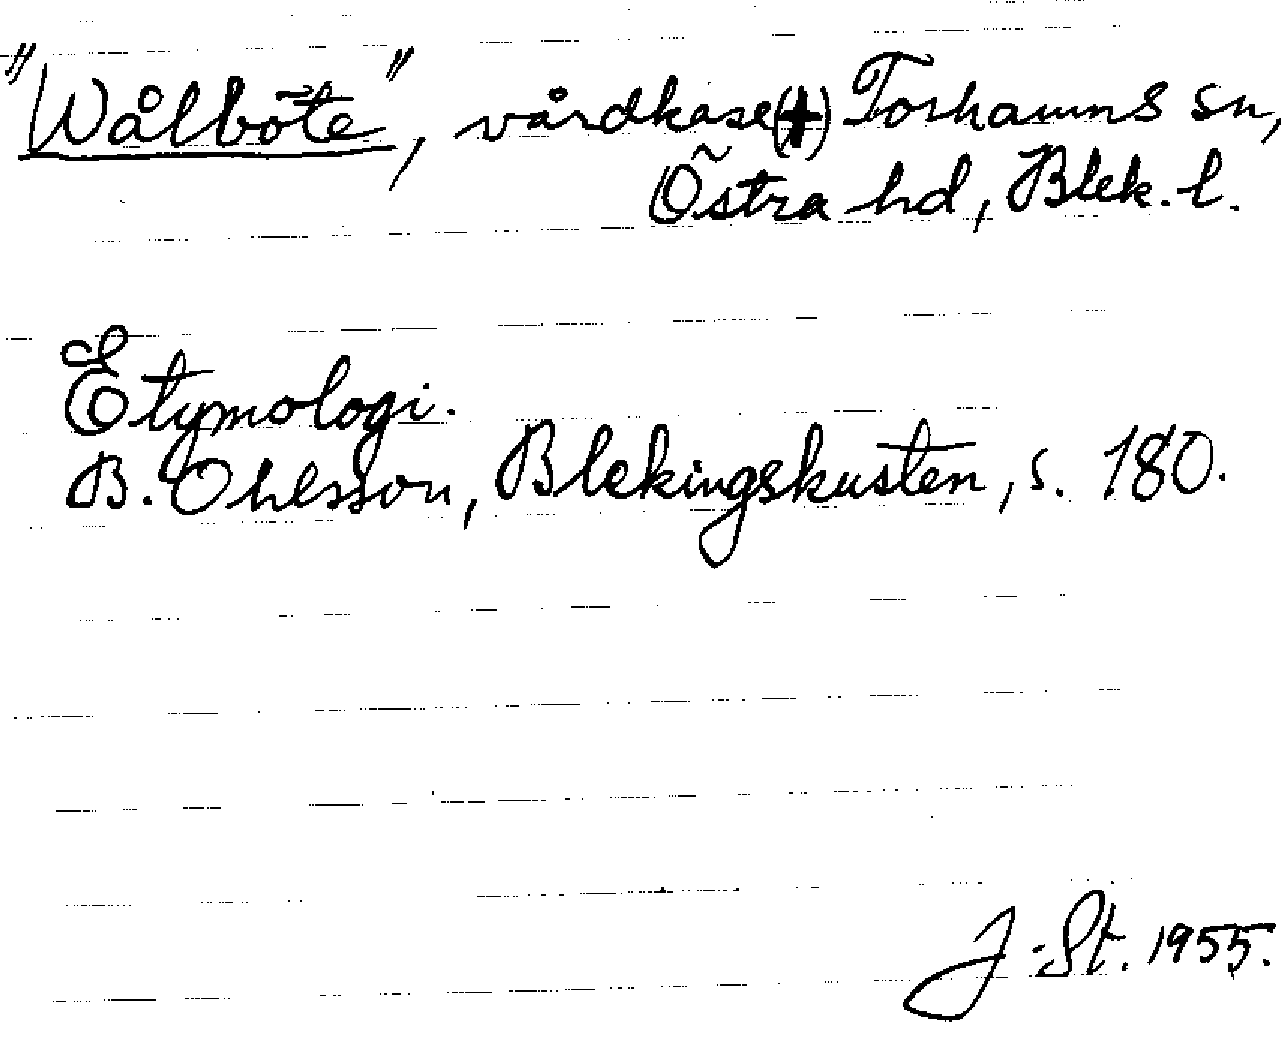 "Wålböte", vårdkase(+) Torhamns sn,
Östra hd, Blek. l.
Etymologi.
B. Ohlsson, Blekingskusten, s. 180.
J. St. 1955.